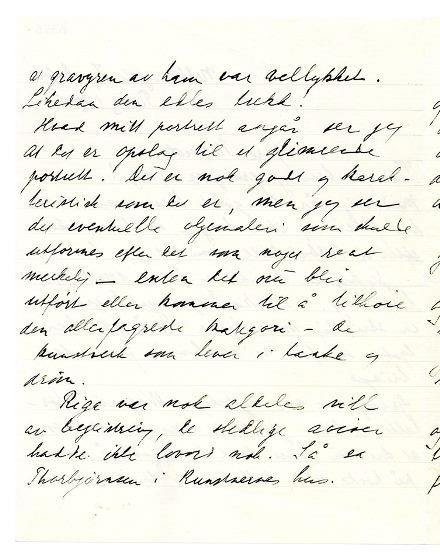 av ham var vellykket.
Likedan den edles
Hvad mitt portrett angår ser jeg
at det er opslag til et glimrende
portrett. Det er nok godt og karak-
teristisk som det er, men jeg ser
det eventuelle oljemaleri som skulde
utformes efter det som noget reat
merkelig – enten det nu blir
utført eller kommer til å tilhøie
den allerfagreste kategori – de
kunstverk som lever i tanke og
drøm.
Riga var nok aldeles vill
av begeistring, de stedlige aviser
hadde ikke lovord nok. Så er
Thorbjørnsen i Kunstnernes hus.